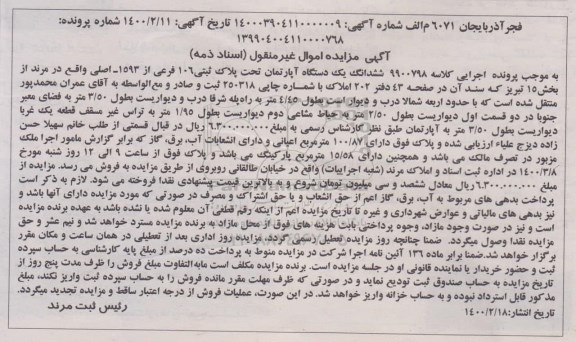 فجرآذربایجان ۶۰۷۱ م‌الف شماره آگهی: ۱۴۰۰۰۳۹۰۴۱۱۰۰۰۰۰۰۹ تاریخ آگهی: ۱۴۰۰/۲/۱۱ شماره پرونده:
۱۳۹۹۰۴۰۰۴۱۱۰۰۰۰۷۶۸
آگهی مزایده اموال غیرمنقول (اسناد ذمه)
به موجب پرونده اجرایی کلاسه ۹۹۰۰۷۹۸ ششدانگ یک دستگاه آپارتمان تحت پلاک ثبتی ۱۰۶ فرعی از ۱۵۹۳ـ اصلی واقـع در مرند از
بخش۱۵ تبریز کـه سنـد آن در صفحـه ۴۳ دفتر ۲۰۲ املاک با شمـاره چاپی ۲۵۰۳۱۸ ثبت و صادر و مع‌الواسطه به آقای عمران محمدپور
منتقل شده است که با حدود اربعه شمالا درب و دیوار است بطول ۴/۴۵ متر به راه‌پله شرقا درب و دیواریست بطول ۳/۵۰ متر به فضای معبر
جنوبا در دو قسمت اول دیواریست بطول ۲/۵۰ متر به حیاط مشاعی دوم دیواریست بطول ۱/۹۵ متر به تراس غیر مسقف قطعه یک غربا
دیواریست بطول ۳/۵۰ متر به آپارتمان طبق نظر کارشناس رسمی به مبلغ ۶.۳۰۰.۰۰۰.۰۰۰ ریال در قبال قسمتی از طلب خانم سهیلا حسن
زاده دیزج علیاء ارزیابی شده و پلاک فوق دارای ۱۰۰/۸۷ مترمربع اعیانی و دارای انشعابات آب، برق، گاز که برابر گزارش مامور اجرا ملک
مزبور در تصرف مالک می باشد و همچنین دارای ۱۵/۵۸ مترمربع پارکینگ می باشد و پلاک فوق از ساعت ۹ الی ۱۲ روز شنبه مورخ
۱۴۰۰/۳/۸ در اداره ثبت اسناد و املاک مرند (شعبه اجراییات) واقع در خیابان طالقانی روبروی از طریق مزایده به فروش می رسد. مزایده از
مبلغ ۶.۳۰۰.۰۰۰.۰۰۰ ریال معادل ششصد و سی میلیون تومان شروع و به بالاترین قیمت پیشنهادی نقدا فروخته می شود. لازم به ذکر است
پرداخت بدهی های مربوط به آب، برق، گاز اعم از حق انشعاب و یا حق اشتراک و مصرف در صورتی که مورد مزایده دارای آنها باشد و
نیز بدهی های مالیاتی و عوارض شهرداری و غیره تا تاریخ مزایده اعم از اینکه رقم قطعی آن معلوم شده یا نشده باشد به عهده برنده مزایده
است و نیز در صورت وجود مازاد، وجوه پرداختی بابت هزینه های فوق از محل مازاد به برنده مزایده مسترد خواهد شد و نیم عشر و حق
مزایده نقدا وصول میگردد. ضمنا چنانچه روز مزایده تعطیل رسمی گردد، مزایده روز اداری بعد از تعطیلی در همان ساعت و مکان مقرر
برگزار خواهد شد.ضمنا برابر ماده ۱۳۶ آئین نامه اجرا شرکت در مزایده منوط به پرداخت ده درصد از مبلغ پایه کارشناسی به حساب سپرده
ثبت و حضور خریدار یا نماینده قانونی او در جلسه مزایده است. برنده مزایده مکلف است مابه‌التفاوت مبلغ فروش را ظرف مدت پنج روز از
تاریخ مزایده به حساب صندوق ثبت تودیع نماید و در صورتی که ظرف مهلت مقرر مانده فروش را به حساب سپرده ثبت واریز نکند، مبلغ
مذکور قابل استرداد نبوده و به حساب خزانه واریز خواهد شد. در این صورت، عملیات فروش از درجه اعتبار ساقط و مزایده تجدید میگردد.
تاریخ انتشار: ۱۴۰۰/۲/۱۸ رئیس ثبت مرند